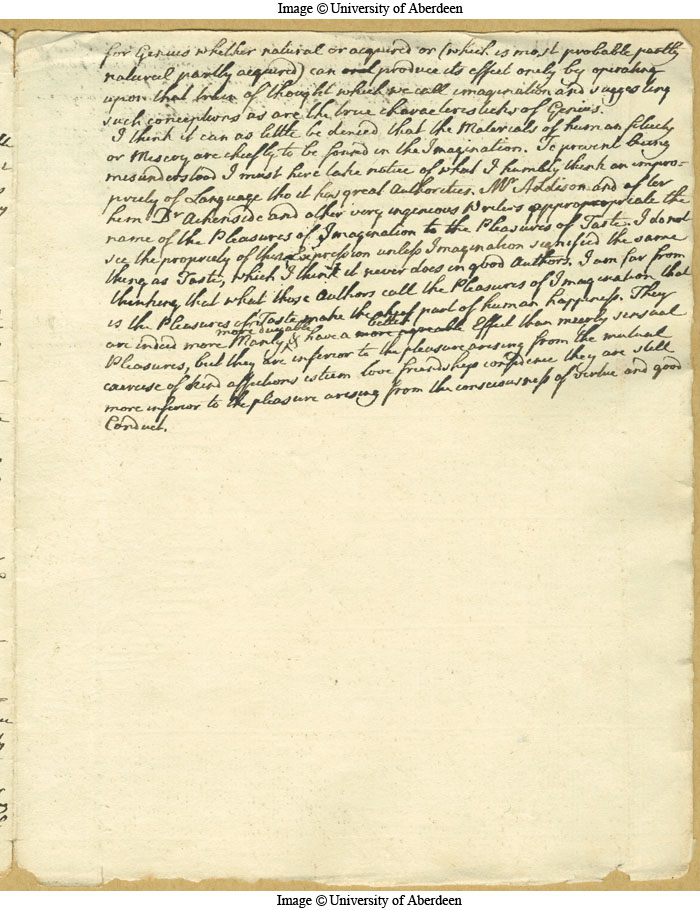 Image © University of Aberdeen
for Genius whether natural or acquired or (which is most probable partly
natural partly acquired) can produce its effect onely by operating
upon that train of thought which we call imagination and suggesting
such conceptions as are the true characteristicks of Genius.
I think it can as little be denied that the Materials of human felicity
or Misery are chiefly to be found in the Imagination. To prevent being
misunderstood I must here take notice of what I humbly think an impro-
priety of Language tho it has great Authorities. Mr Addison and after
him Dr Akenside and other very ingenious Writers appropriate the
name of the Pleasures of Imagination to the Pleasures of Taste. I do not
see the propriety of this Expression unless Imagination signified the same
thing as Taste, which I think it never does in good Authors. I am far from
thinking that what those Authors call the Pleasures of Imagination that
is the Pleasures of Taste make the chief part of human happiness. They
more durable better
are indeed more Manly & have a more agreeable Effect than meerly sensual
Pleasures, but they are inferior to the pleasure arising from the mutual
exercise of kind affections esteem love friendship confidence they are still
more inferior to the pleasure arising from the consciousness of virtue and good
Conduct.
Image © University of Aberdeen